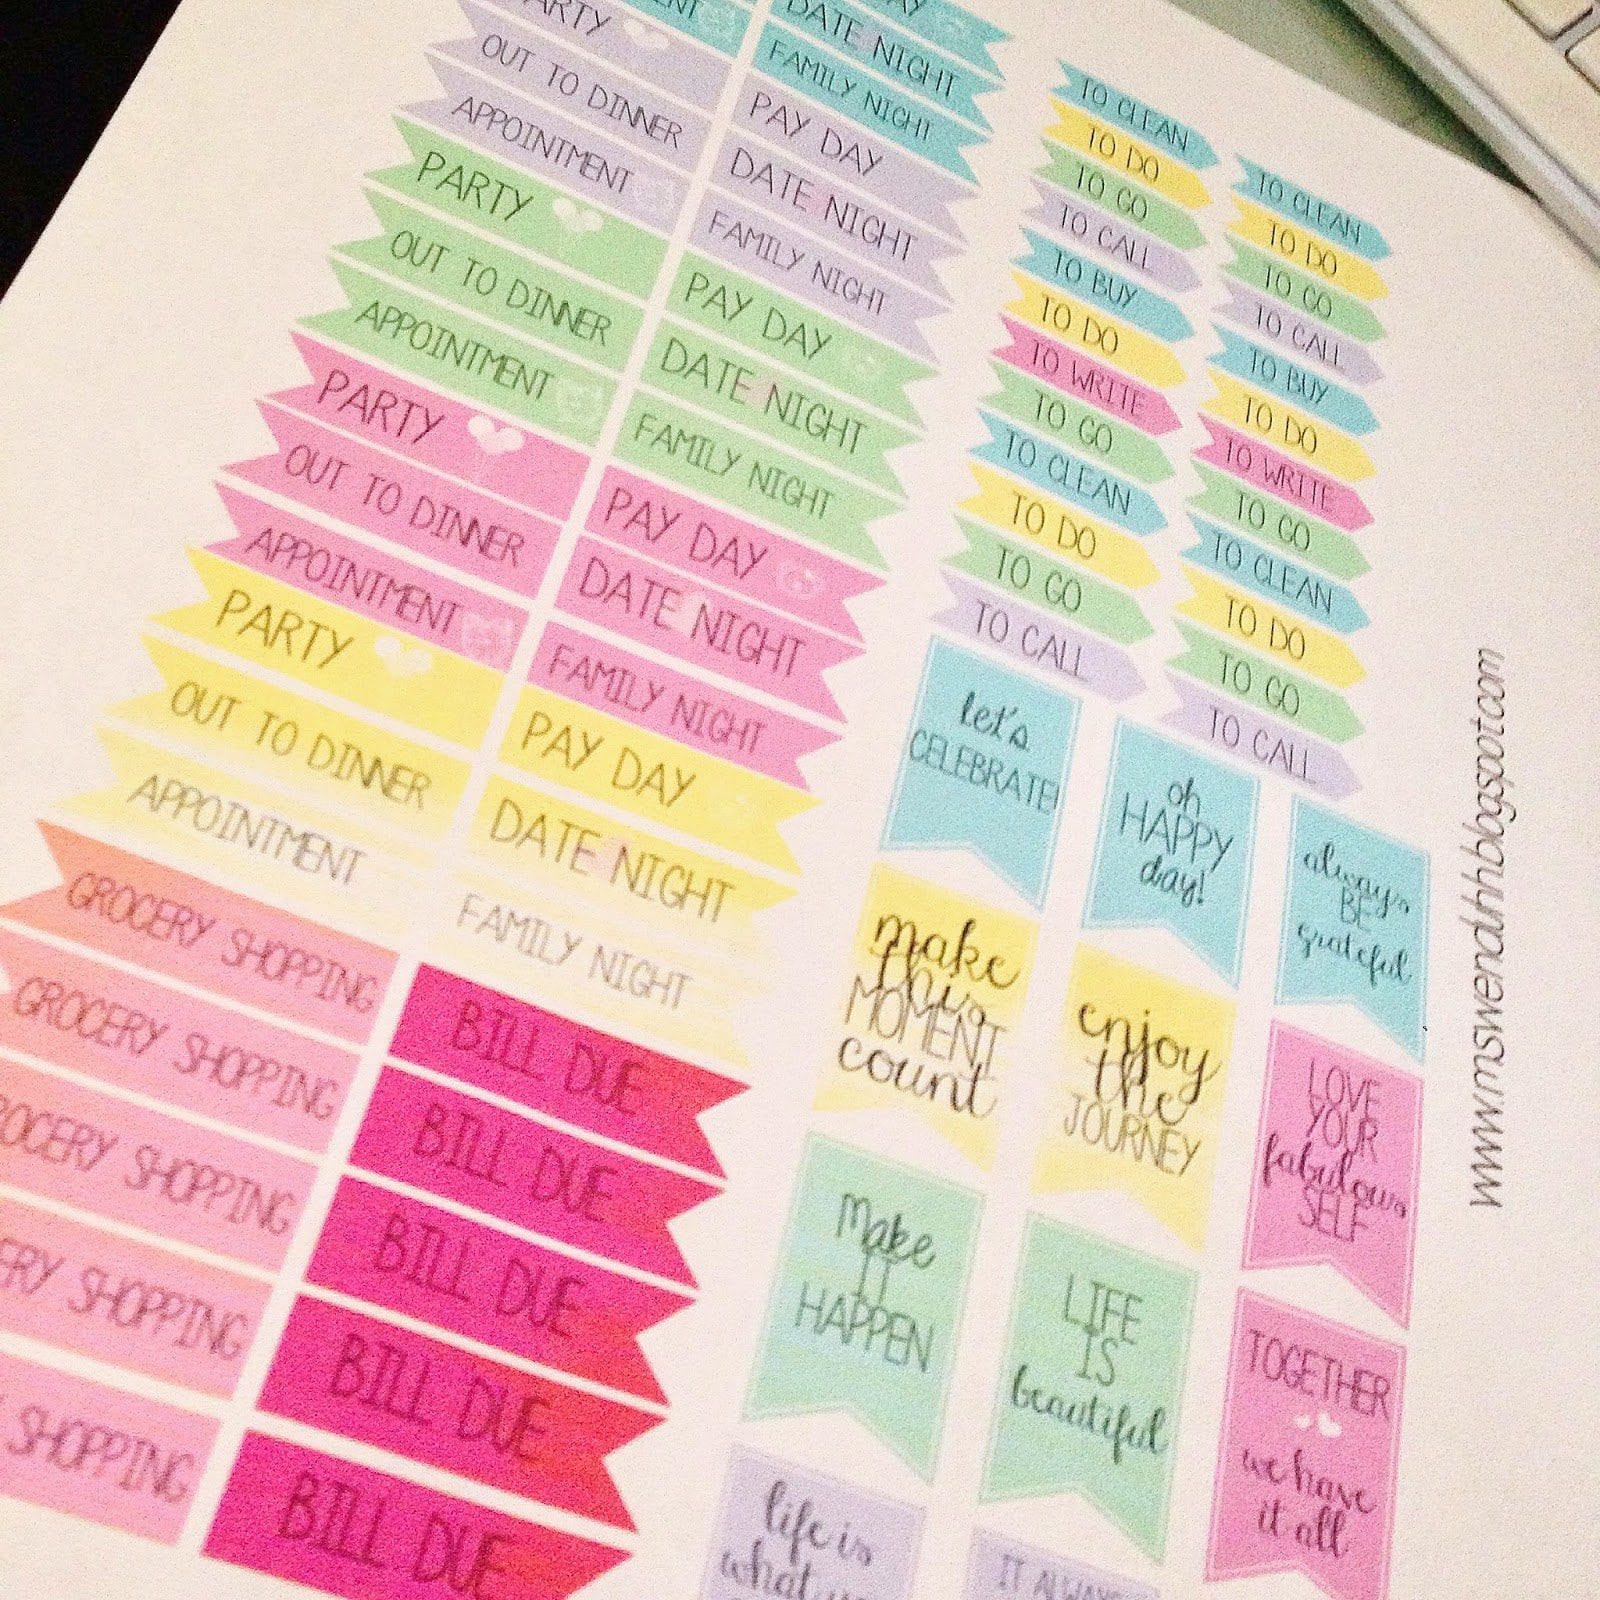 PARTY
OUT TO DINNER
APPOINTMENT
PARTY
OUT TO DINNER
APPOINTMENT
PARTY
OUT TO DINNER
APPOINTMENT
PARTY
OUT TO DINNER
APPOINTMENT
GROCERY SHOPPING
GROCERY SHOPPING
ROCERY SHOPPING
ERY SHOPPING
SHOPPING
DAY
DATE NIGHT
FAMILY NIGHT
PAY DAY
DATE NIGHT
FAMILY NIGHT
PAY DAY
DATE NIGHT
FAMILY NIGHT
PAY DAY
DATE NIGHT
FAMILY NIGHT
PAY DAY
DATE NIGHT
FAMILY NIGHT
BILL DUE
BILL DUE
BILL DUE
BILL DUE
BILL DUE
TO CLEAN
TO DO
TO GO
TO CALL
TO BUY
TO DO
TO WRITE
TO GO
TO CLEAN
TO DO
TO GO
TO CALL
TO CLEAN
TO DO
TO GO
TO CALL
TO BUY
TO DO
TO WRITE
TO GO
TO CLEAN
TO DO
TO GO
TO CALL
let's
CELEBRATE!
oh
HAPPY
day!
always
BE
grateful
make
this
MOMENT
count
enjoy
the
JOURNEY
LOVE
YOUR
fabulous
SELF
Make
IT
HAPPEN
LIFE
IS
beautiful
TOGETHER
we have
it all
life is
what
IT ALWAYS
www.mswendhhh.blogspot.com